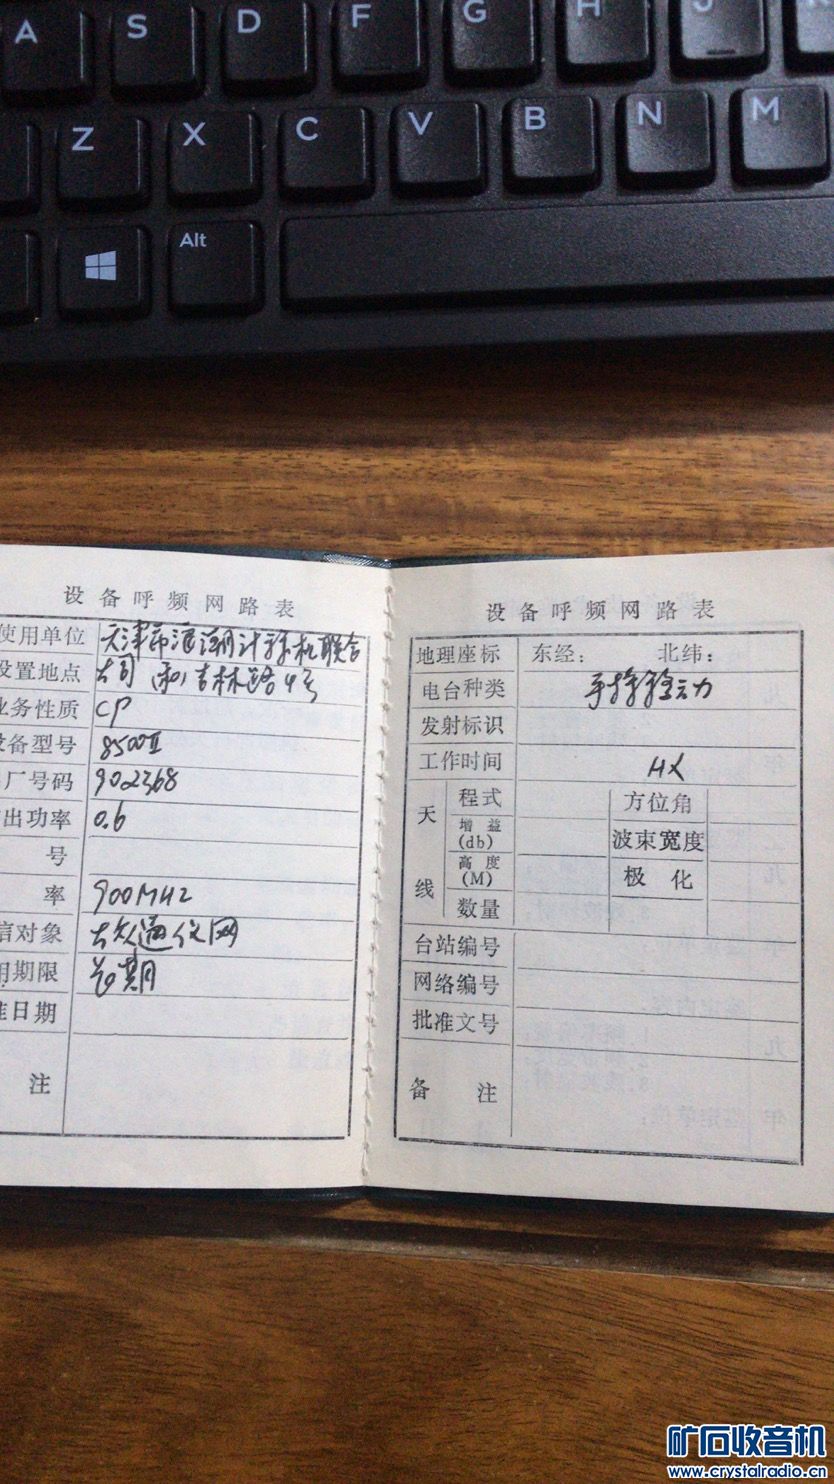 A S D F G H J
Z X C V B N M
Alt
设备呼频网路表
使用单位 天津市浪潮计算机联合
设置地点 公司 (和)吉林路4号
业务性质 CP
设备型号 8500Ⅱ
厂号码 902368
出功率 0.6
号
率 900MHz
信对象 大众通信网
用期限 长期
准日期
注
设备呼频网路表
地理座标 东经: 北纬:
电台种类 手持移动
发射标识
工作时间 HX
天线 程式 方位角
增益(db) 波束宽度
高度(M) 极化
数量
台站编号
网络编号
批准文号
备注
矿石收音机
www.crystalradio.cn